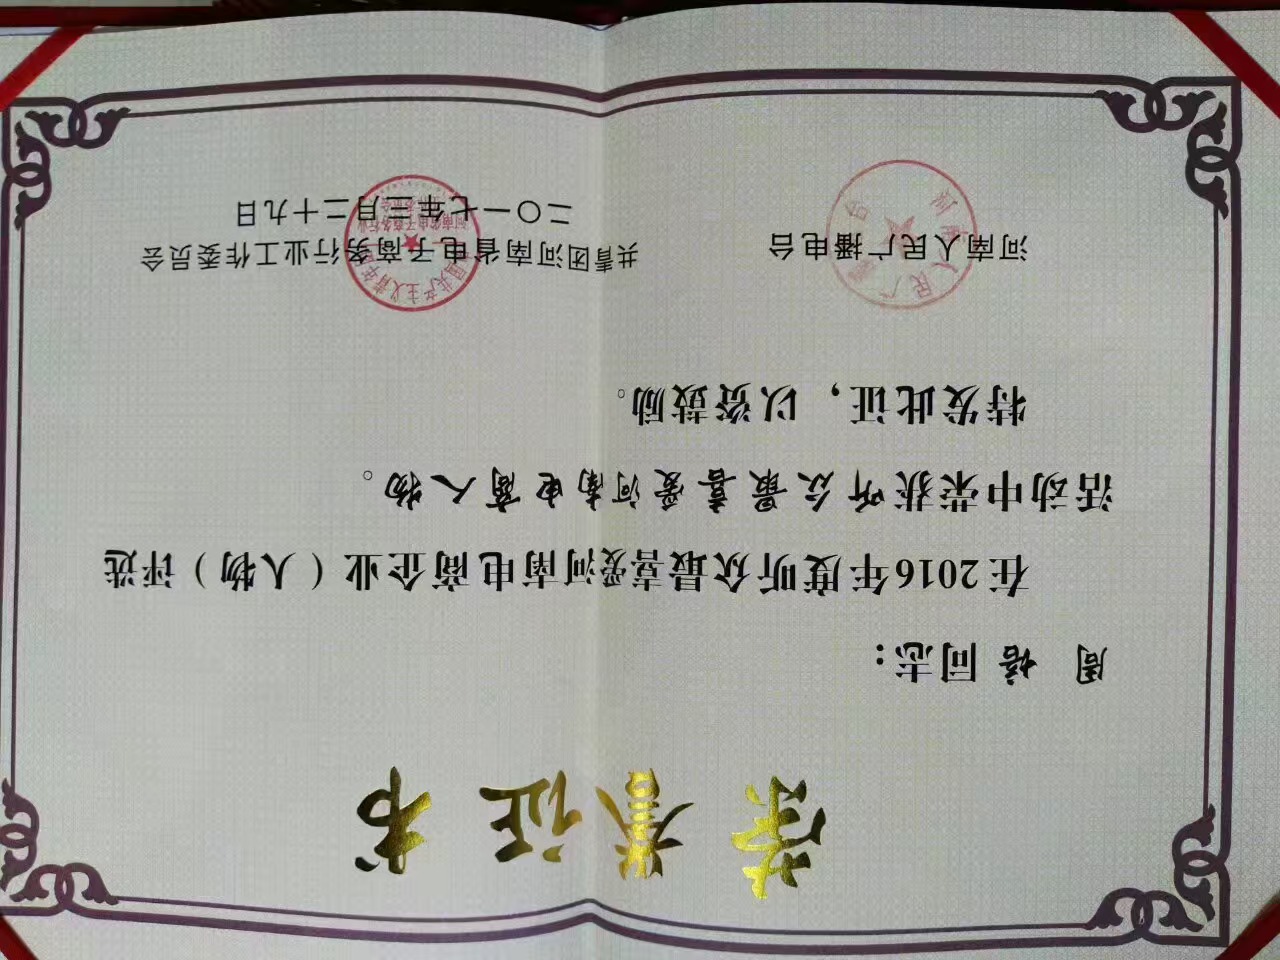 荣誉证书
周培同志：
在2016年度听众最喜爱河南电商企业（人物）评选
活动中荣获听众最喜爱河南电商人物。
特发此证，以资鼓励。
河南人民广播电台
共青团河南省电子商务行业工作委员会
二〇一七年三月二十九日
河南人民广播电台